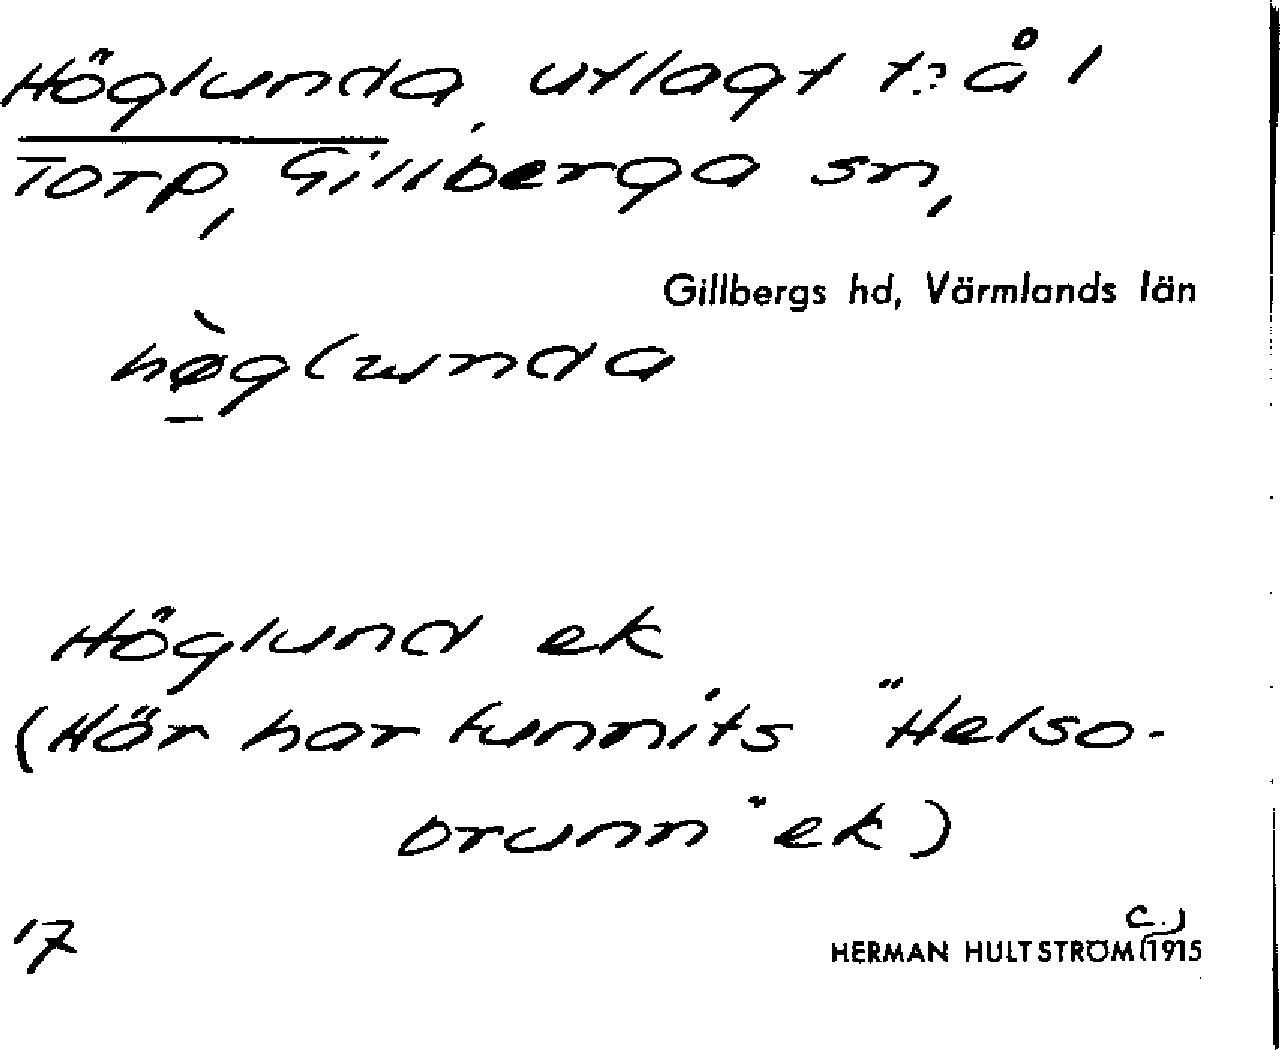 Höglunda, utlagt från
Torp, Gillberga sn,
Gillbergs hd, Värmlands län
hø̀g(lunda
Höglund ek
(Här har funnits "Helso-
brunn" ek)
17
HERMAN HULTSTRÖM (c.) 1915